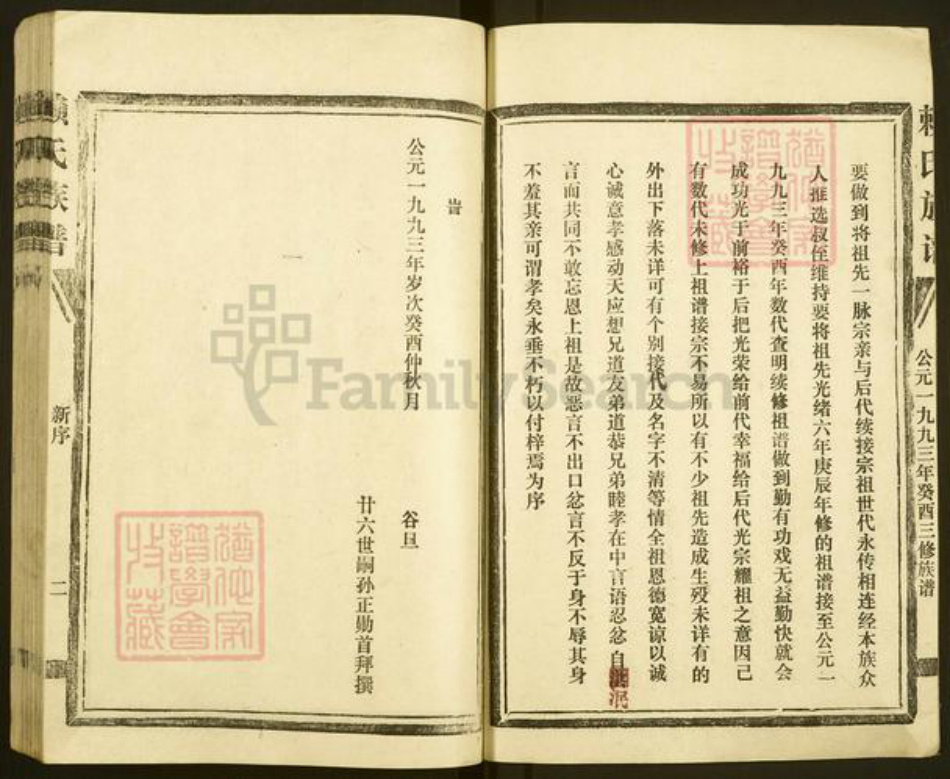 赖氏族谱
公元一九九三年癸酉三修族谱
要做到将祖先一脉宗亲与后代续接宗祖世代永传相连经本族众
人推选叔侄维持要将祖先光绪六年庚辰年修的祖谱接至公元一
九九三年癸酉年数代查明续修祖谱做到勤有功戏无益勤快就会
成功光于前裕于后把光荣给前代幸福给后代光宗耀祖之意因己
有数代未修上祖谱接宗不易所以有不少祖先造成生殁未详有的
外出下落未详可有个别接代及名字不清等情全祖恩德宽谅以诚
心诚意孝感动天应想兄道友弟道恭兄弟睦孝在中言语忍忿自泯
言而共同不敢忘恩上祖是故恶言不出口忿言不反于身不辱其身
不羞其亲可谓孝矣永垂不朽以付梓焉为序
旹
公元一九九三年岁次癸酉仲秋月 谷旦
廿六世嗣孙正勋首拜撰
赖氏族谱
新序
二
譜學會
收藏
譜學會
收藏
FamilySearch